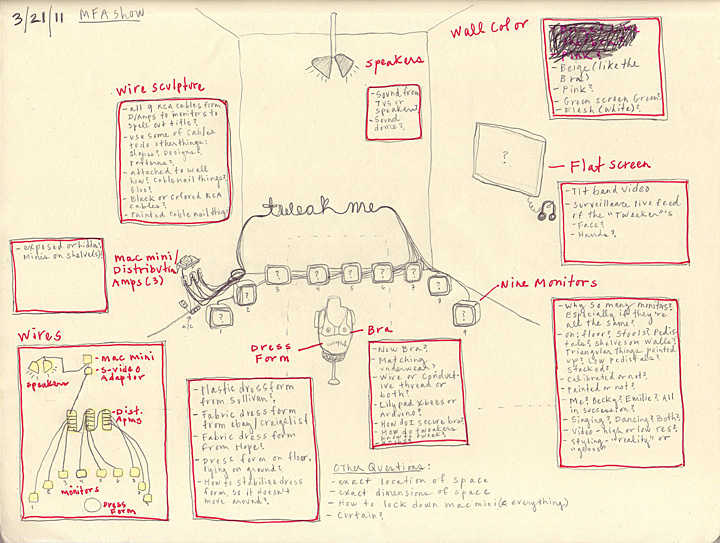 3/21/11 MFA show
Wire sculpture
- all 9 RCA cables from
D/Amps to monitors to
spell out title?
- use some of cables
to do other things:
shapes? Designs?
Patterns?
- Attached to wall
how? Cable nail things?
Glue?
- Black or colored RCA
cables?
- Painted cable nail things
speakers
- Sound from
TVs or
speakers?
- Sound
dome?
Wall Color
- Beige (like the
Bra)
- Pink?
- Green screen Green?
- Flesh (White)?
?
Flat screen
- Tit band video
- Surveillance live feed
of the "Tweeker"'s
- Face?
- Hands?
tweak me
- exposed or hidden?
Minis on shelve(s)?
mac mini/
Distribution
Amps (3)
a/c
? ? ? ? ? ? ? ? ?
1 2 3 4 5 6 7 8 9
Nine Monitors
- Why so many monitors?
Especially if they're
all the same?
- On: floor? Stools? Pedis-
tals? shelves on walls?
Triangular things pointed
up? Low pedistals?
Stacked?
- Calibrated or not?
- Painted or not?
- Me? Becky? Emilie? All
in succession?
- Singing? Dancing? Both?
- Video - high or low res?
- Styling - "reality" or
Wires
speakers
- mac mini
- S-video
Adaptor
- Dist.
Apms
1 2 3 4 5 6 7 8 9
monitors
Dress
Form
Dress
Form
Bra
- Plastic dressform
from Sullivan?
- Fabric dress form
from ebay/craigslist
- Fabric dress form
from Hope?
- Dress form on floor,
lying on ground?
- How to stabilize dress
form, so it doesn't
move around?
- New Bra?
- Matching
underwear?
- Wire or Conduct-
ive thread or
both?
- Lilypad xbees or
arduino?
- How do I secure bra?
- How do tweakers
know to tweak?
Other Questions:
- exact location of space
- exact dimensions of space
- How to lock down mac mini (& everything)
- Curtain?